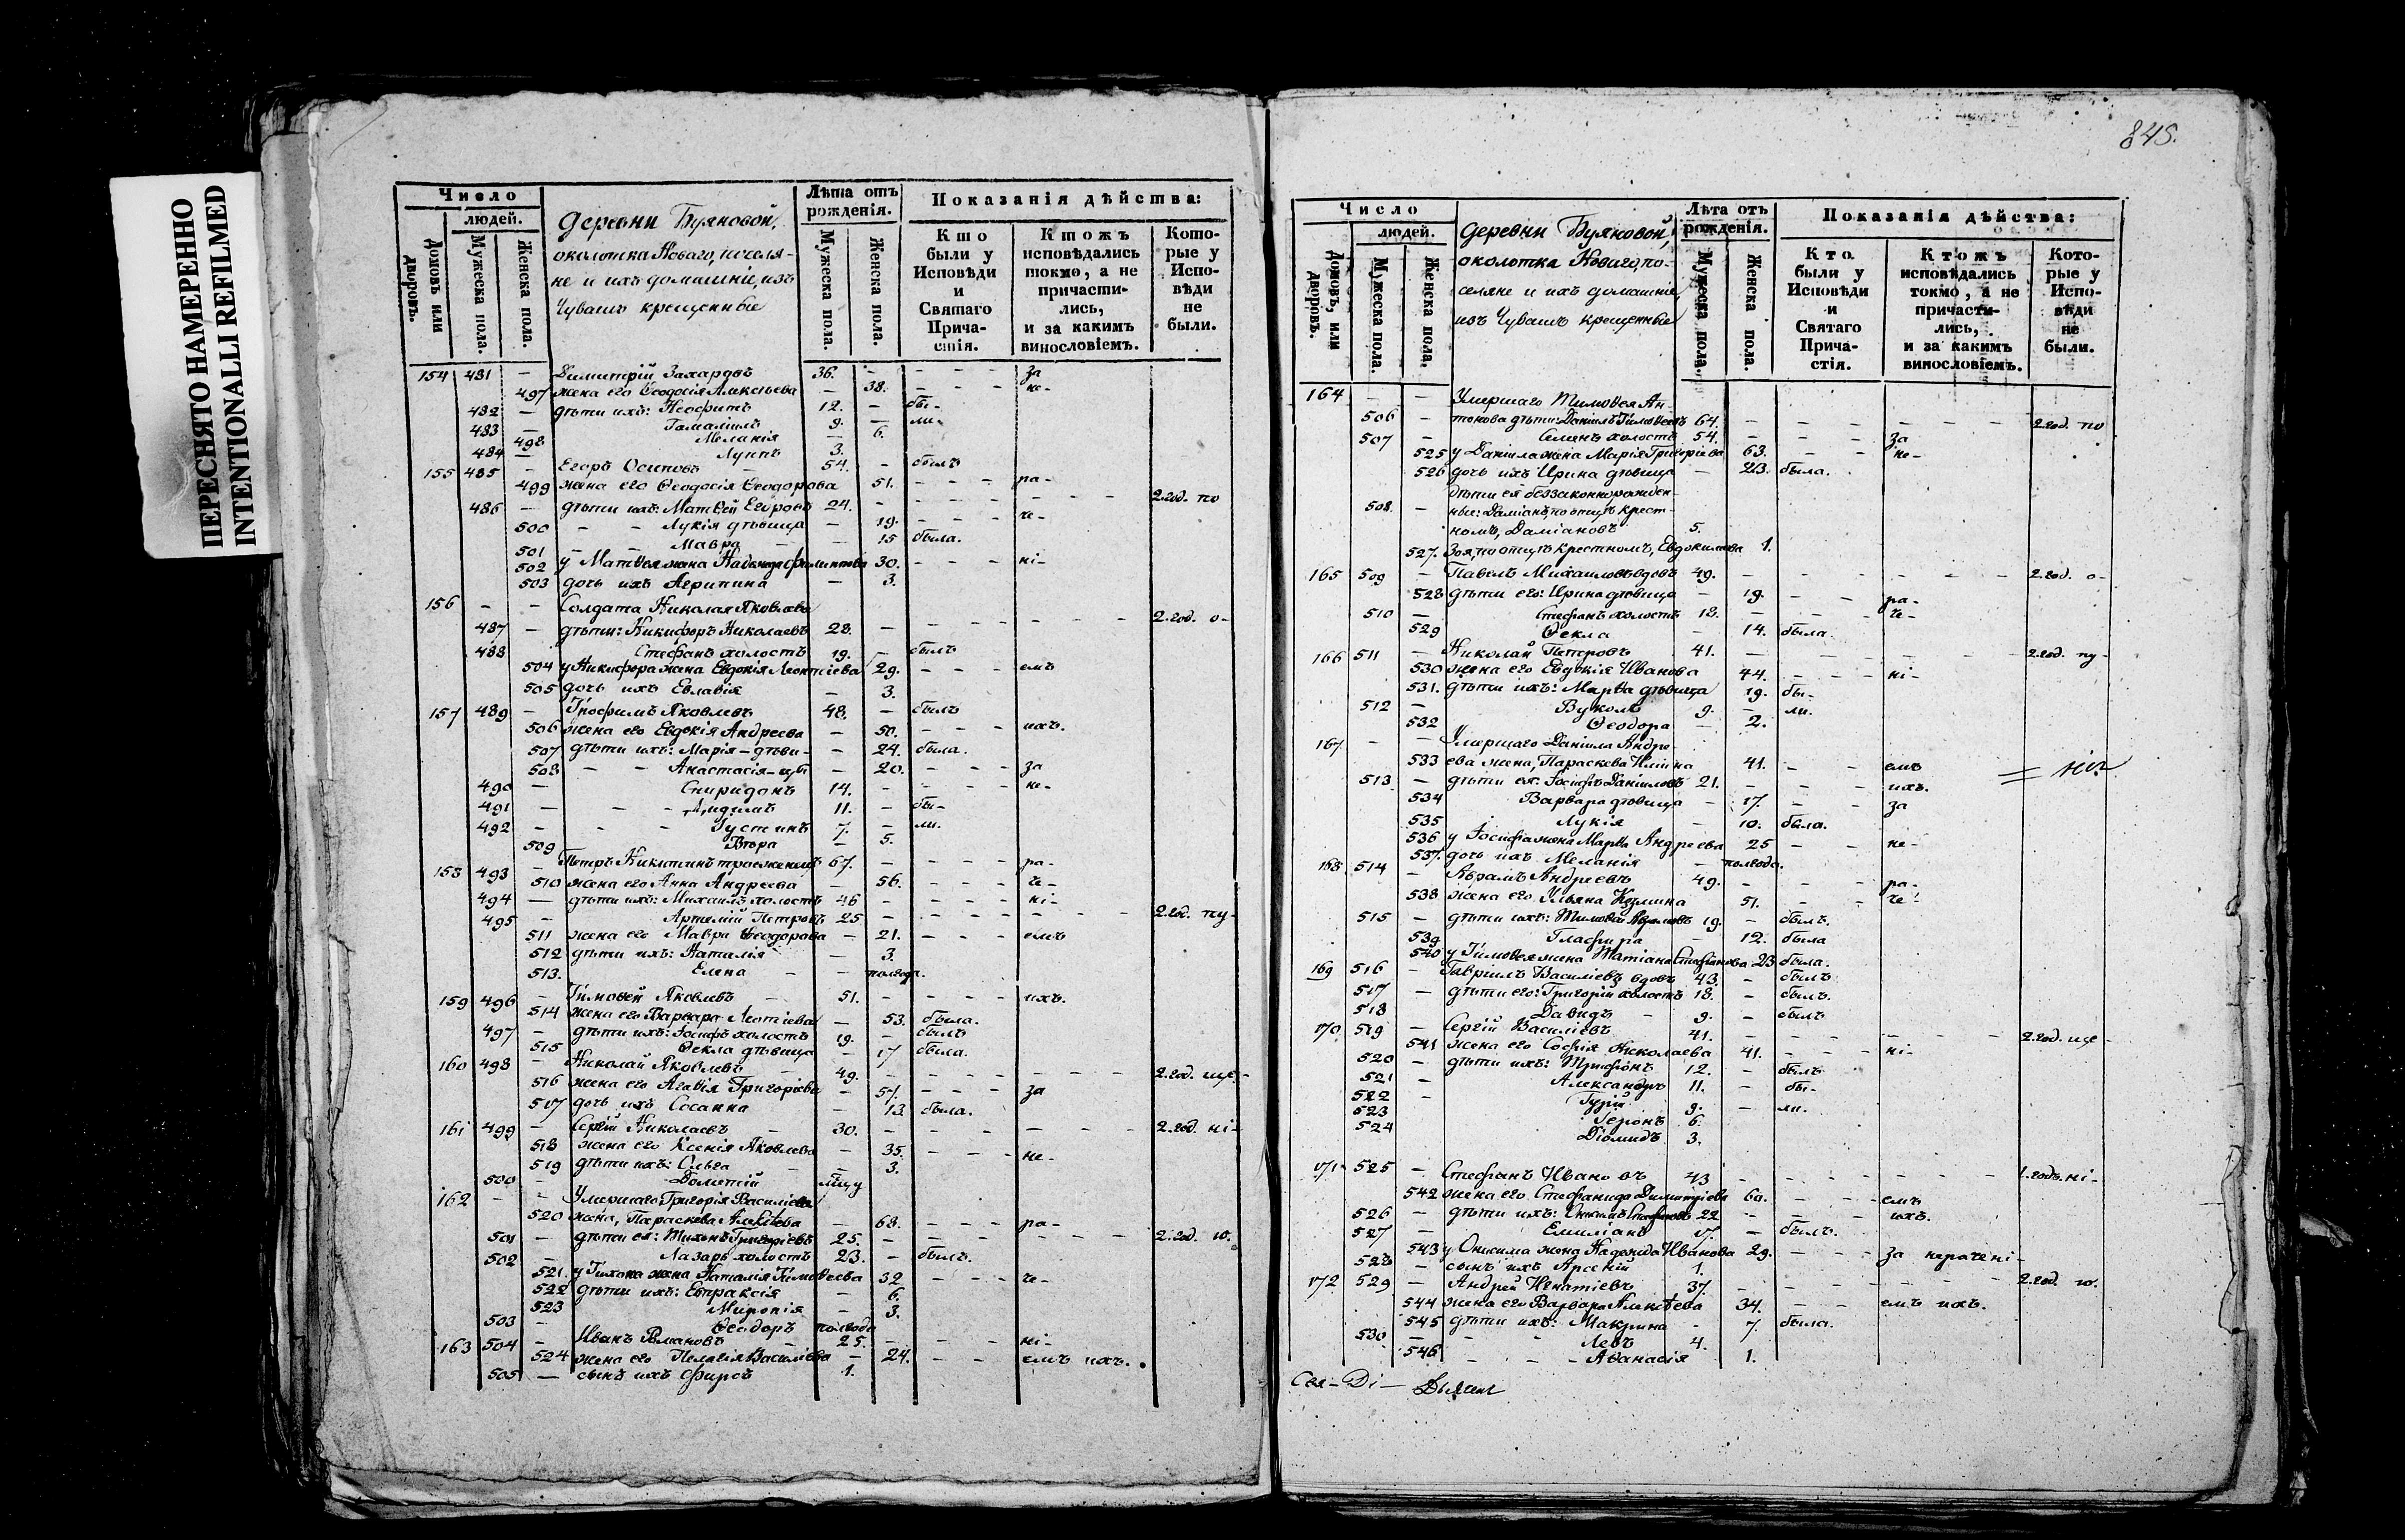 ПЕРЕСНЯТО НАМЕРЕННО
INTENTIONALLI REFILMED
845.
Число
людей.
Домовъ или дворовъ.
Мужеска пола.
Женска пола.
Деревни Буяновой,
околотка Новаго, поселя-
не и ихъ домашніе, изъ
Чувашъ крещенные
Лѣта отъ рожденія.
Мужеска пола.
Женска пола.
Показанія дѣйства:
Кто были у Исповѣди и Святаго Прича-стія.
Ктожъ исповѣдались токмо, а не причасти-лись, и за какимъ винословіемъ.
Кото-рые у Испо-вѣди не были.
154 481 — Димитрій Захаровъ 36. — — — — за
497 жена его Ѳеодосія Алексѣева — 38. — — — не-
482 — дѣти ихъ: Неофитъ 12. — бы-
483 — Гамаліилъ 9. — ли.
498 Меланія — 6.
484 — Луппъ 3.
155 485 — Егоръ Осиповъ — 54. — былъ
499 жена его Ѳеодосія Ѳеодорова 51. — — — ра-
486 — дѣти ихъ: Матвей Егоровъ 24. — — — — — — — 2. год. по
500 — — Лукія дѣвица — 19. — — — че-
501 — — Мавра — — 15 была.
502 у Матвея жена Надежда Филиппова 30. — — — ні-
503 дочь ихъ Агрипина — 3.
156 — — Солдата Николая Яковлева
487 — дѣти: Никифоръ Николаевъ 28. — — — — — — — 2. год. о-
488 Стефанъ холостъ 19. — былъ
504 у Никифора жена Евдокія Леонтіева 29. — — — емъ
505 дочь ихъ Евлавія — 3.
157 489 — Трофимъ Яковлевъ 48. — былъ
506 жена его Евдокія Андреева — 50. — — — ихъ.
507 дѣти ихъ: Марія — дѣви- — 24. была.
508 — — Анастасія — цы — 20. — — — за
490 — Спиридонъ 14. — — — — не-
491 — — — Дидимъ 11. — бы-
492 — — — Іустинъ 7. — ли.
509 Вѣра — 5.
158 493 — Петръ Никитинъ троеженецъ 67. — — — — ра-
510 жена его Анна Андреева — 56. — — — че-
494 — дѣти ихъ: Михаилъ холостъ 46 — — — — ні-
495 — Артемій Петровъ 25 — — — — — — — 2. год. пу-
511 жена его Мавра Ѳеодорова — 21. — — — емъ
512 дѣти ихъ: Наталія — 3.
513. Елена — — полгода.
159 496 — Тимоѳей Яковлевъ — 51. — — — — ихъ.
514 жена его Варвара Леонтіева — 53. была.
497 — дѣти ихъ: Іосифъ холостъ 19. — былъ
515 Ѳекла дѣвица — 17 была.
160 498 — Николай Яковлевъ — 49. — — — — — — — 2. год. ще-
516 жена его Агавія Григоріева — 57. — — — за
517 дочь ихъ Сосанна — 13. была.
161 499 — Сергій Николаевъ — 30. — — — — — — — 2. год. ні-
518 жена его Ксенія Яковлева — 35. — — — не-
519 дѣти ихъ: Ольга — 3.
500 — Дометій мѣсяцъ
162 — — Умершаго Григорія Василіева
520 жена, Параскева Алексѣева — 68. — — — ра-
501 — дѣти ея: Тихонъ Григоріевъ 25. — — — — — — — 2. год. ю.
502 — Лазарь холостъ 23. — былъ.
521. у Тихона жена Наталія Тимоѳеева 32 — — — че-
522 дѣти ихъ: Евпраксія — 6.
523 Миропія — 3.
503 — Ѳеодоръ полгода
163 504 — Иванъ Романовъ — 25. — — — ні-
524 жена его Пелагія Василіева — 24. — — емъ ихъ.
505 — сынъ ихъ Фирсъ 1.
Число
людей.
Домовъ, или дворовъ.
Мужеска пола.
Женска пола.
Деревни Буяновой,
околотка Новаго, по-
селяне и ихъ домашніе,
изъ Чувашъ крещенные
Лѣта отъ рожденія.
Мужеска пола.
Женска пола.
Показанія дѣйства:
Кто были у Исповѣди и Святаго Прича-стія.
Ктожъ исповѣдались токмо, а не причасти-лись, и за какимъ винословіемъ.
Кото-рые у Испо-вѣди не были.
164 — — Умершаго Тимоѳея Ан-
506 — тонова дѣти: Даніилъ Тимоѳеевъ 64. — — — — — — — 2. год. по
507 — Семенъ холостъ 54. — — — за
525 у Даніила жена Марія Григоріева 63. — — не-
526 дочь ихъ Ирина дѣвица — 23. была.
дѣти ея беззаконнорожден-
508. — ные: Даміанъ, по отцѣ крест-
номъ, Даміановъ 5.
527. Зоя, по отцѣ крестномъ, Евдокимова 1.
165 509 — Павелъ Михаиловъ вдовъ 49. — — — — — — 2. год. о-
528 дѣти его: Ирина дѣвица — 19. — — ра-
510 — Стефанъ холостъ 18. — — — че-
529 Ѳекла — 14. была.
166 511 — Николай Петровъ 41. — — — — — — 2. год. пу-
530 жена его Евдокія Иванова 44. — — — ні-
531. дѣти ихъ: Марѳа дѣвица 19. бы-
512 — Вуколъ 9. — ли.
532 Ѳеодора — 2.
167. — — Умершаго Даніила Андре
533 ева жена, Параскева Ильина 41. — — емъ
513 — дѣти ея: Іосифъ Даніиловъ 21. — — — ихъ.
534 Варвара дѣвица — 17. — — за
535 Лукія — 10. была.
536 у Іосифа жена Марѳа Андреева 25 — — не-
537. дочь ихъ Меланія — полгода.
168 514 — Абрамъ Андреевъ 49. — — — ра-
538 жена его Ульяна Козмина 51. — — че-
515 — дѣти ихъ: Тимоѳей Абрамовъ 19. — былъ.
539 Глафира — 12. была
540 у Тимоѳея жена Татіана Стефанова 23 была.
169 516 — Гавріилъ Василіевъ вдовъ 43. — былъ
517 — дѣти его: Григорій холостъ 18. — былъ.
518 Давидъ — 9. — былъ
170 519 — Сергій Василіевъ 41. — — — — — — 2. год. ще-
541 жена его Софія Николаева 41. — — — ні-
520 — дѣти ихъ: Трифонъ 12. — былъ
521 — Александръ 11. — бы-
522 — Гурій 9. — ли.
523 Геронъ 6.
524 Діомидъ 3.
171 525 — Стефанъ Ивановъ 43 — — — — — — 1. годъ. ні-
542 жена его Стефанида Димитріева 60. — — — емъ
526 — дѣти ихъ: Онисимъ Стефановъ 22 — — — ихъ.
527 — Емиліанъ 17. — былъ.
543 у Онисима жена Надежда Иванова 29. — — — за нерачені-
528 — сынъ ихъ Арсеній 1.
172 529 — Андрей Игнатіевъ 37. — — — — — — 2. год. ю.
544 жена его Варвара Алексѣева 34. — — емъ ихъ.
545 дѣти ихъ: Макрина — 7. была.
530 — — — Левъ 4.
546 — — — Аѳанасія 1.